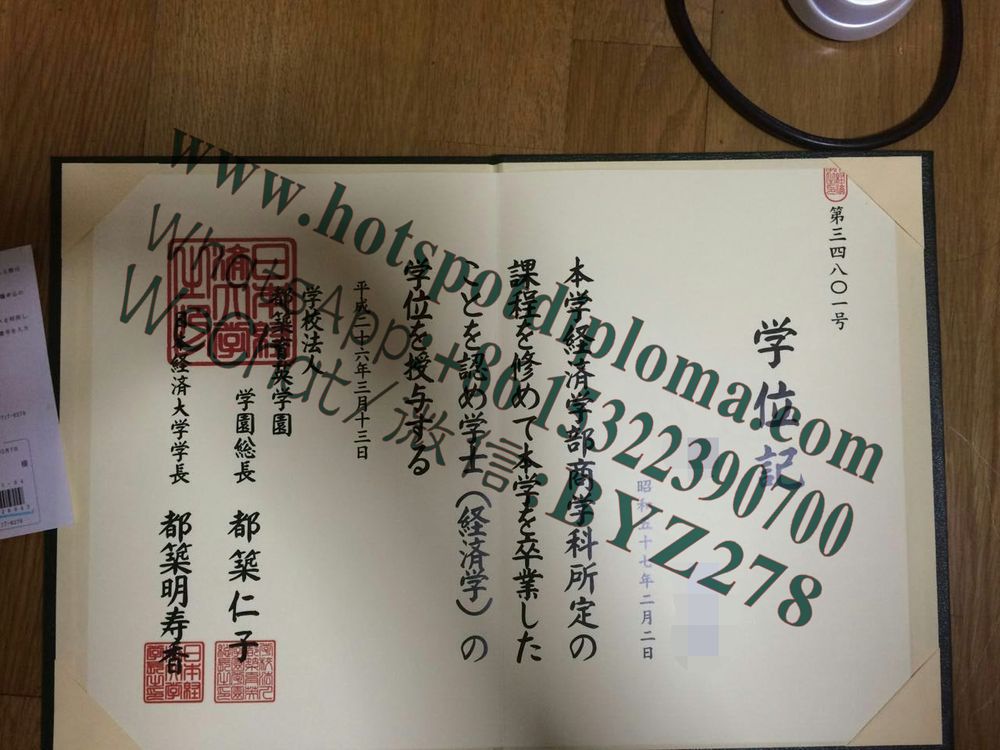 第三四八〇一号
学位記
昭和五十七年二月二日
本学経済学部商学科所定の
課程を修めて本学を卒業した
ことを認め学士（経済学）の
学位を授与する
平成二十六年三月十三日
学校法人
都築育英学園
学園総長 都築仁子
日本経済大学学長 都築明寿香
www.hotspotdiploma.com
WhatsApp:+8615322390700
WeChat/微信:BYZ278